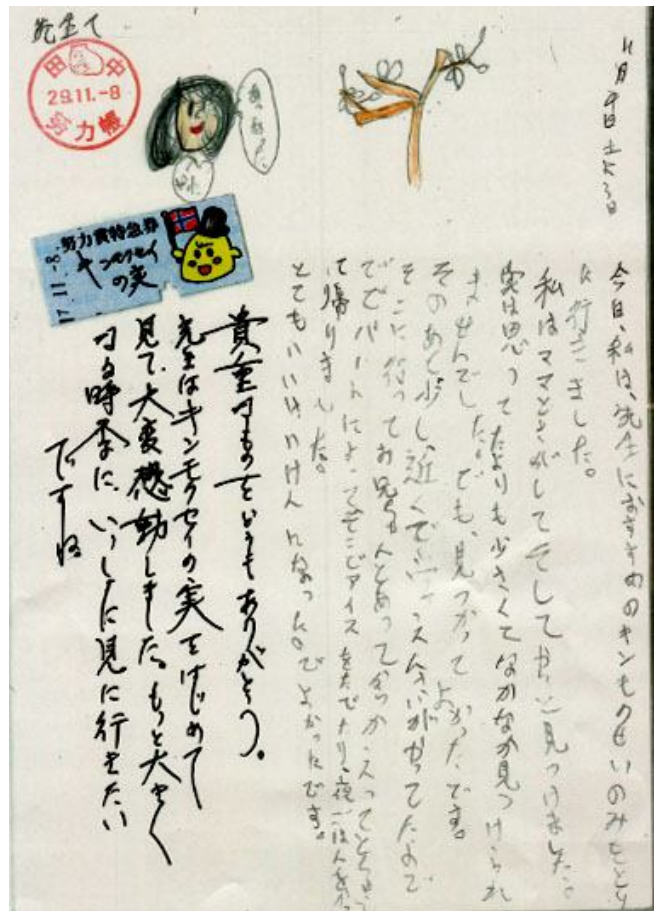 先生て
田中
29.11.-8
努力帳
努力賞特急券
キンモクセイ
の実
11月4日土よう日
今日、私は、先生におすすめのキンもくせいのみをとり
に行きました。
私はママとさがしてそしてやっと見つけました。
実は思ってたよりも少さくてなかなか見つけられ
ませんでした。でも、見つかってよかったです。
そのあと少し近くで
そこに行ってお兄ちゃんとあって
でデパートによってそこでアイスをたべたり、夜ごはんを
て帰りました。
とてもいいけいけんになった。でよかったです。
貴重なものをどうもありがとう。
先生はキンモクセイの実をはじめて
見て、大変感動しました。もっと大きく
なる時季に、いっしょに見に行きたい
ですね